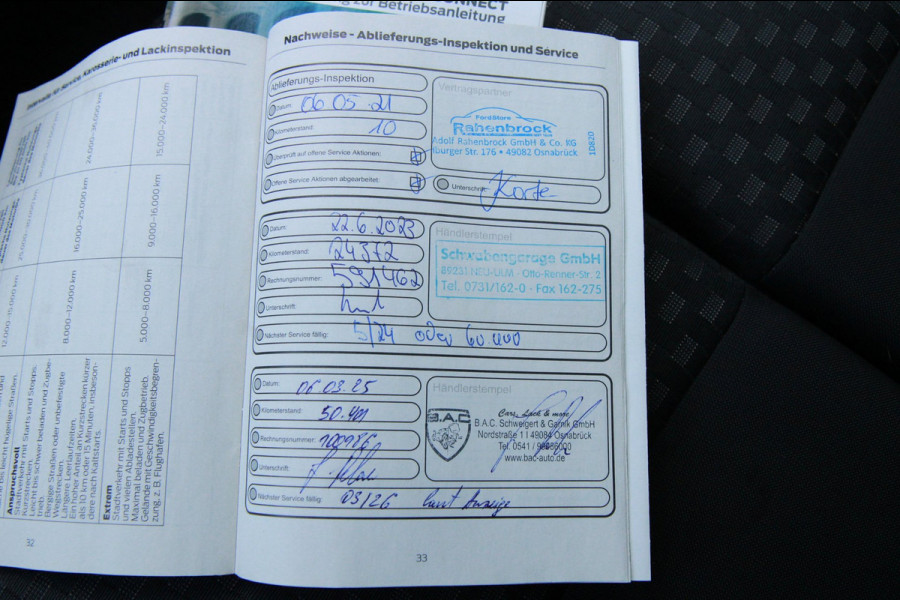 NNECT
zur Betriebsanleitung
Intervalle für Service, Karosserie- und Lackinspektion
24.000–36.000 km
15.000–24.000 km
16.000–25.000 km
9.000–16.000 km
8.000–12.000 km
5.000–8.000 km
bis leicht hügelige Straßen.
Anspruchsvoll
Stadtverkehr mit Starts und Stopps.
Kurzstrecken.
Leicht bis schwer beladen und Zugbe-
trieb.
Bergige Straßen oder unbefestigte
Wegstrecken.
Längere Leerlaufzeiten.
Ein hoher Anteil an Kurzstrecken kürzer
als 10 km oder 15 Minuten, insbeson-
dere nach Kaltstarts.
Extrem
Stadtverkehr mit Starts und Stopps
und vielen Abladestellen.
Maximal beladen und Zugbetrieb.
Gelände mit Geschwindigkeitsbegren-
zung, z. B. Flughafen.
Nachweise - Ablieferungs-Inspektion und Service
Ablieferungs-Inspektion
Datum: 06 05 21
Kilometerstand: 10
Überprüft auf offene Service Aktionen:
Offene Service Aktionen abgearbeitet:
Vertragspartner
FordStore
Rahenbrock
Adolf Rahenbrock GmbH & Co. KG
burger Str. 176 • 49082 Osnabrück
Unterschrift: Korte
Datum: 22.6.2023
Kilometerstand: 24372
Rechnungsnummer: 591462
Unterschrift:
Nächster Service fällig: 5/24 oder 60 000
Händlerstempel
Schwabengarage GmbH
89231 NEU-ULM · Otto-Renner-Str. 2
Tel. 0731/162-0 - Fax 162-275
Datum: 06.03.25
Kilometerstand:
Rechnungsnummer:
Unterschrift:
Nächster Service fällig: 03/26 laut Anzeige
Händlerstempel
B.A.C.
Cars, Lack & more
B.A.C. Schweigert & Garnik GmbH
Nordstraße 11 49084 Osnabrück
www.bac-auto.de
33